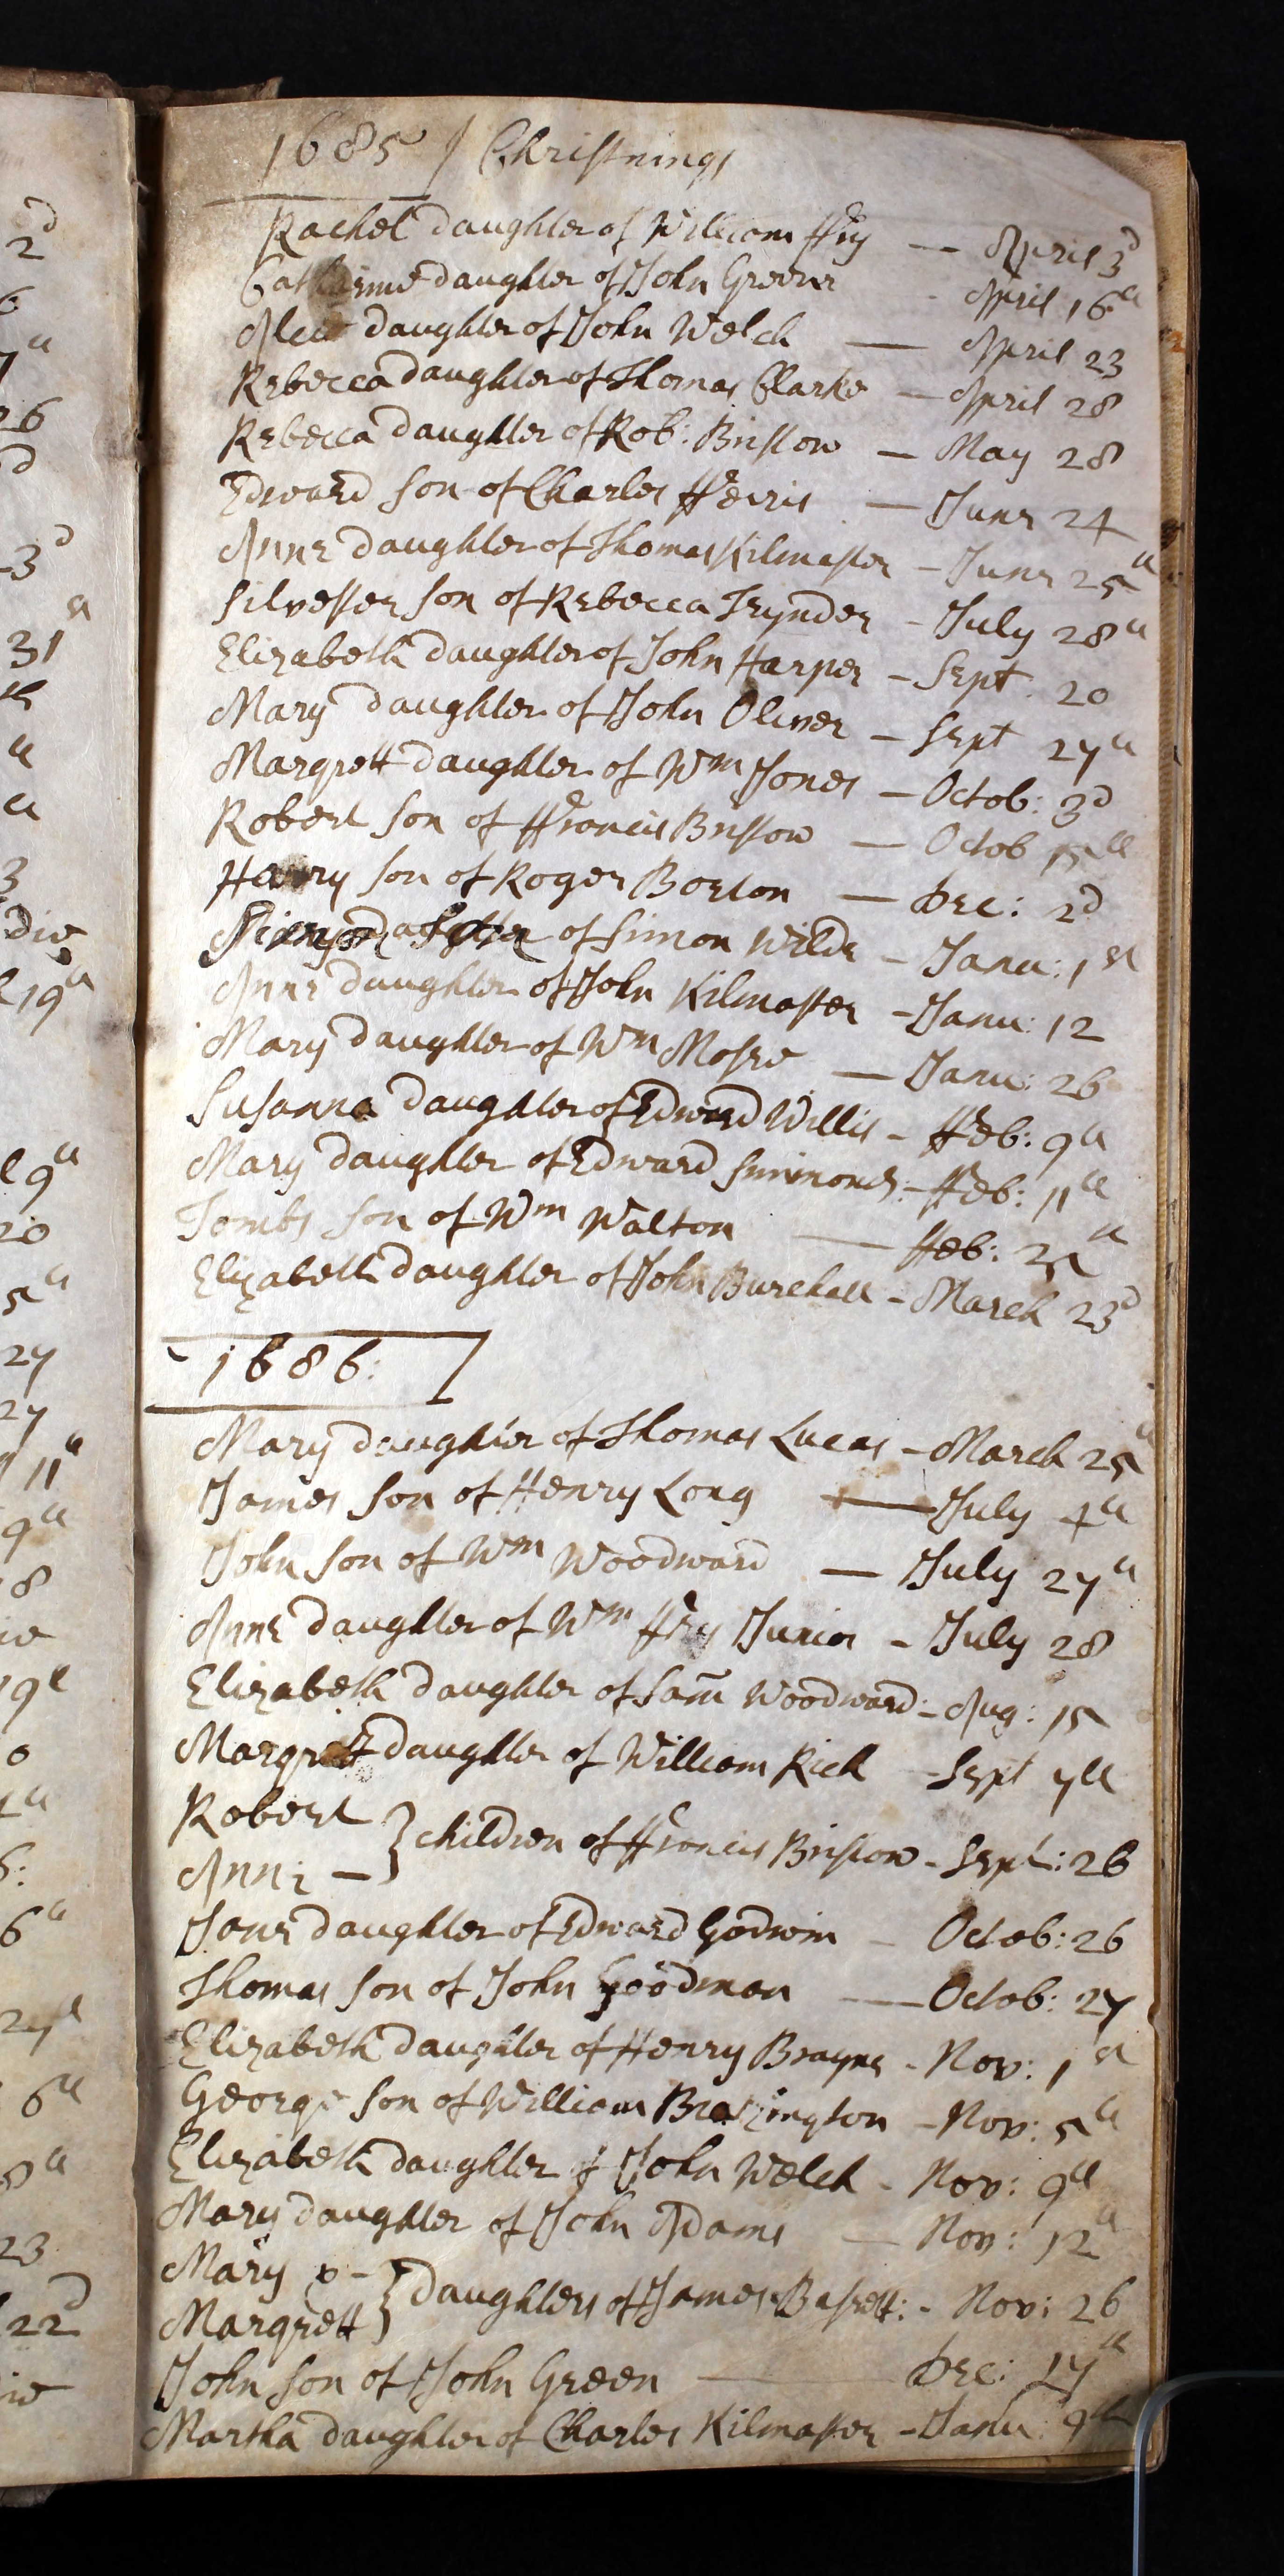 1685 / Christnings
Rachel daughter of William ffry — April 3d
Catherine daughter of John Greene - April 16th
daughter of John Welch — April 23
Rebecca daughter of Thomas Clarke — April 28
Rebecca daughter of Rob: Bristow — May 28
Edward son of Charles fferris — June 24
Anne daughter of Thomas Kilmaster - June 25th
Silvester son of Rebecca Trynder - July 28th
Elizabeth daughter of John Harper - Sept 20
Mary daughter of John Oliver - Sept 27th
Margrett daughter of Wm Jones - Octob: 3d
Robert son of ffrancis Bristow — Octob 15th
Harry son of Roger Borton — Dec: 2d
of Simon Wilde - Janu: 1st
Anne daughter of John Kilmaster - Janu: 12
Mary daughter of Wm Mosse — Janu: 26
Susanna daughter of Edward Willis - ffeb: 9th
Mary daughter of Edward Simmonds: - ffeb: 11th
Tombs son of Wm Walton — ffeb: 25th
Elizabeth daughter of John Burchall - March 23d
1686:
Mary daughter of Thomas Lucas - March 25th
James son of Henry Long — July 4th
John son of Wm Woodward — July 27th
Anne daughter of Wm ffry Junior - July 28
Elizabeth daughter of Sam̃ Woodward: - Aug: 15
Margrett daughter of William Rich - Sept 7th
Robert
Anne — } children of ffrancis Bristow - Sept: 26
Jone daughter of Edward Godwin - Octob: 26
Thomas son of John Goodman — Octob: 27
Elizabeth daughter of Henry Brayne - Nov: 1st
George son of William Brazington - Nov: 5th
Elizabeth daughter of John Welch - Nov: 9th
Mary daughter of John Adams — Nov: 12th
Mary & -
Margrett } daughters of James Bassett: - Nov: 26
John son of John Green — Dec: 17th
Martha daughter of Charles Kilmaster - Janu: 9th